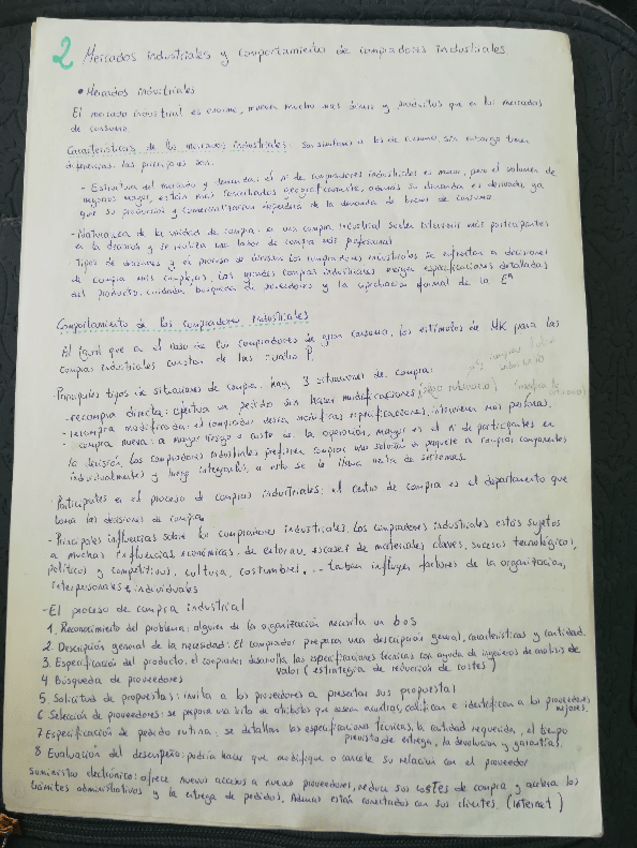 2 Mercados industriales y comportamiento de compradores industriales.
• Mercados industriales
El mercado industrial es enorme, mueven mucho más dinero y productos que en los mercados
de consumo.
Características de los mercados industriales: Son similares a los de consumo, sin embargo tienen
diferencias. Las principales son:
- Estructura del mercado y demanda: el nº de compradores industriales es menor, pero el volumen de
mayor, están más concentrados geográficamente, además su demanda es derivada ya
que su producción y comercialización dependerá de la demanda de bienes de consumo.
- Naturaleza de la unidad de compra: en una compra industrial suelen intervenir más participantes
en la decisión y se realiza una labor de compra más profesional
Tipos de decisiones y el proceso de decisión: Los compradores industriales se enfrentan a decisiones
de compra más complejas. Las grandes compras industriales exigen especificaciones detalladas
del producto, búsqueda de proveedores y la aprobación formal de la Eª
Comportamiento de los compradores industriales
Al igual que en el caso de los compradores de gran consumo, los estímulos de MK para las
compras industriales constan de las cuatro P.
·Principales tipos de situaciones de compra. Hay 3 situaciones de compra:
- recompra directa: efectúa un pedido sin hacer modificaciones
- recompra modificada: el comprador desea modificar especificaciones, intervienen más personas.
- compra nueva: a mayor riesgo o coste de la operación, mayor es el nº de participantes en
la decisión. Los compradores industriales prefieren comprar una solución en paquete a comprar componentes
individualmente y luego integrarlos, a esto se le llama venta de sistemas.
·Participantes en el proceso de compras industriales: el centro de compra es el departamento que
toma las decisiones de compra.
- Principales influencias sobre los compradores industriales. Los compradores industriales están sujetos
a muchas influencias económicas, de entorno, escasez de materiales claves, sucesos tecnológicos,
políticos y competitivos, cultura, costumbres,... también influyen factores de la organización,
interpersonales e individuales
- El proceso de compra industrial
1. Reconocimiento del problema: alguien de la organización necesita un bos
2. Descripción general de la necesidad: El comprador prepara una descripción general, características y cantidad.
3. Especificación del producto: el comprador desarrolla las especificaciones técnicas con ayuda de ingenieros de análisis de
valor (estrategia de reducción de costes)
4 Búsqueda de proveedores
5. Solicitud de propuestas: invita a los proveedores a presentar sus propuestas
6 Selección de proveedores: se prepara una lista de atributos que desean encontrar, califican e identifican a los proveedores
mejores.
7 Especificación de pedido rutina: se detallan las especificaciones técnicas, la cantidad requerida, el tiempo
previsto de entrega, la devolución y garantías.
8 Evaluación del desempeño: podría hacer que modifique o cancele su relación con el proveedor
Suministro electrónico: ofrece nuevos accesos a nuevos proveedores, reduce sus costes de compra y acelera los
trámites administrativos y la entrega de pedidos. Además están conectados con sus clientes. (internet)